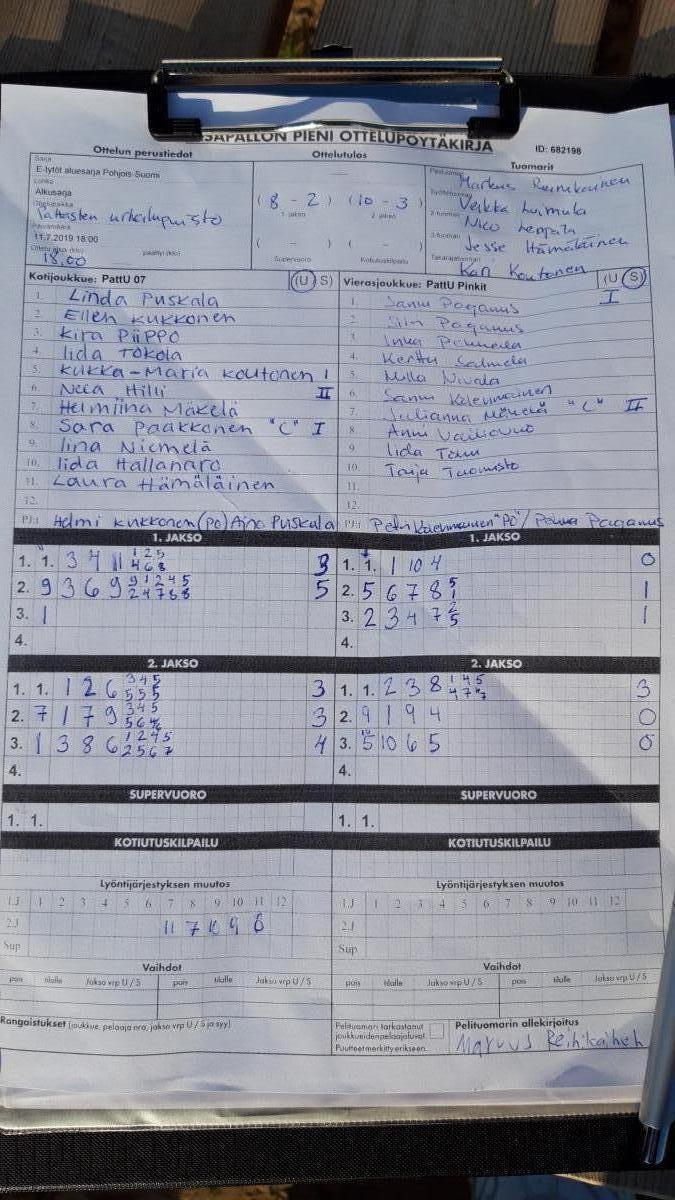 SAPALLON PIENI OTTELUPÖYTÄKIRJA
ID: 682198
Ottelun perustiedot
Ottelutulos
Tuomarit
Sarja
E-tytöt aluesarja Pohjois-Suomi
Lohko
Alkusarja
Ottelupaikka
Pattasten urheilupuisto
Päivämäärä
11.7.2019 18:00
Ottelu alkoi (klo)
päättyi (klo)
18.00
( 8 - 2 ) ( 10 - 3 )
1. jakso
2. jakso
( - ) ( - )
Supervuoro
Kotiutuskilpailu
Markus
Veikka Luimula
Nico Leppälä
Jesse Hämäläinen
Kari Koutonen
Kotijoukkue: PattU 07 (U S)
1. Linda Puskala
2. Ellen Kukkonen
3. Kira Piippo
4. Iida Tokola
5. Kukka-Maria Koutonen I
6. Neea Hilli II
7. Helmiina Mäkelä
8. Sara Paakkonen "C" I
9. Iina Niemelä
10. Iida Hallanaro
11. Laura Hämäläinen
12.
PJ: Helmi Kukkonen (PO) Aino Puskala
Vierasjoukkue: PattU Pinkit (U S)
I
1. Sanni Paganus
2. Siiri Paganus
3. Inka
4. Kerttu Salmela
5. Milla Nivala
6. Sanni Kalevinainen
7. Julianna Mäkelä "C" II
8. Anni
9. Iida
10. Taija Tuomisto
11.
12.
PJ: "PO" / Paganus
1. JAKSO
1. 1. 3 4 11 3
2. 9 3 6 9 5
3. 1
4.
1. JAKSO
1. 1. 1 10 4 0
2. 5 6 7 8 1
3. 2 3 4 7 1
4.
2. JAKSO
1. 1. 1 2 6 3
2. 7 1 7 9 3
3. 1 3 8 6 4
4.
2. JAKSO
1. 1. 2 3 8 3
2. 9 1 9 4 0
3. 5 10 6 5 0
4.
SUPERVUORO
1. 1.
SUPERVUORO
1. 1.
KOTIUTUSKILPAILU
KOTIUTUSKILPAILU
Lyöntijärjestyksen muutos
1.J 1 2 3 4 5 6 7 8 9 10 11 12
2.J 11 7 10 9 8
Sup
Lyöntijärjestyksen muutos
1.J 1 2 3 4 5 6 7 8 9 10 11 12
2.J
Sup
Vaihdot
pois tilalle Jakso vrp U / S pois tilalle Jakso vrp U / S
Vaihdot
pois tilalle Jakso vrp U / S pois tilalle Jakso vrp U / S
Rangaistukset (joukkue, pelaaja nro, jakso vrp U / S ja syy)
Pelituomari tarkastanut
joukkueiden pelaajaluvat.
Puutteet merkitty erikseen.
Pelituomarin allekirjoitus